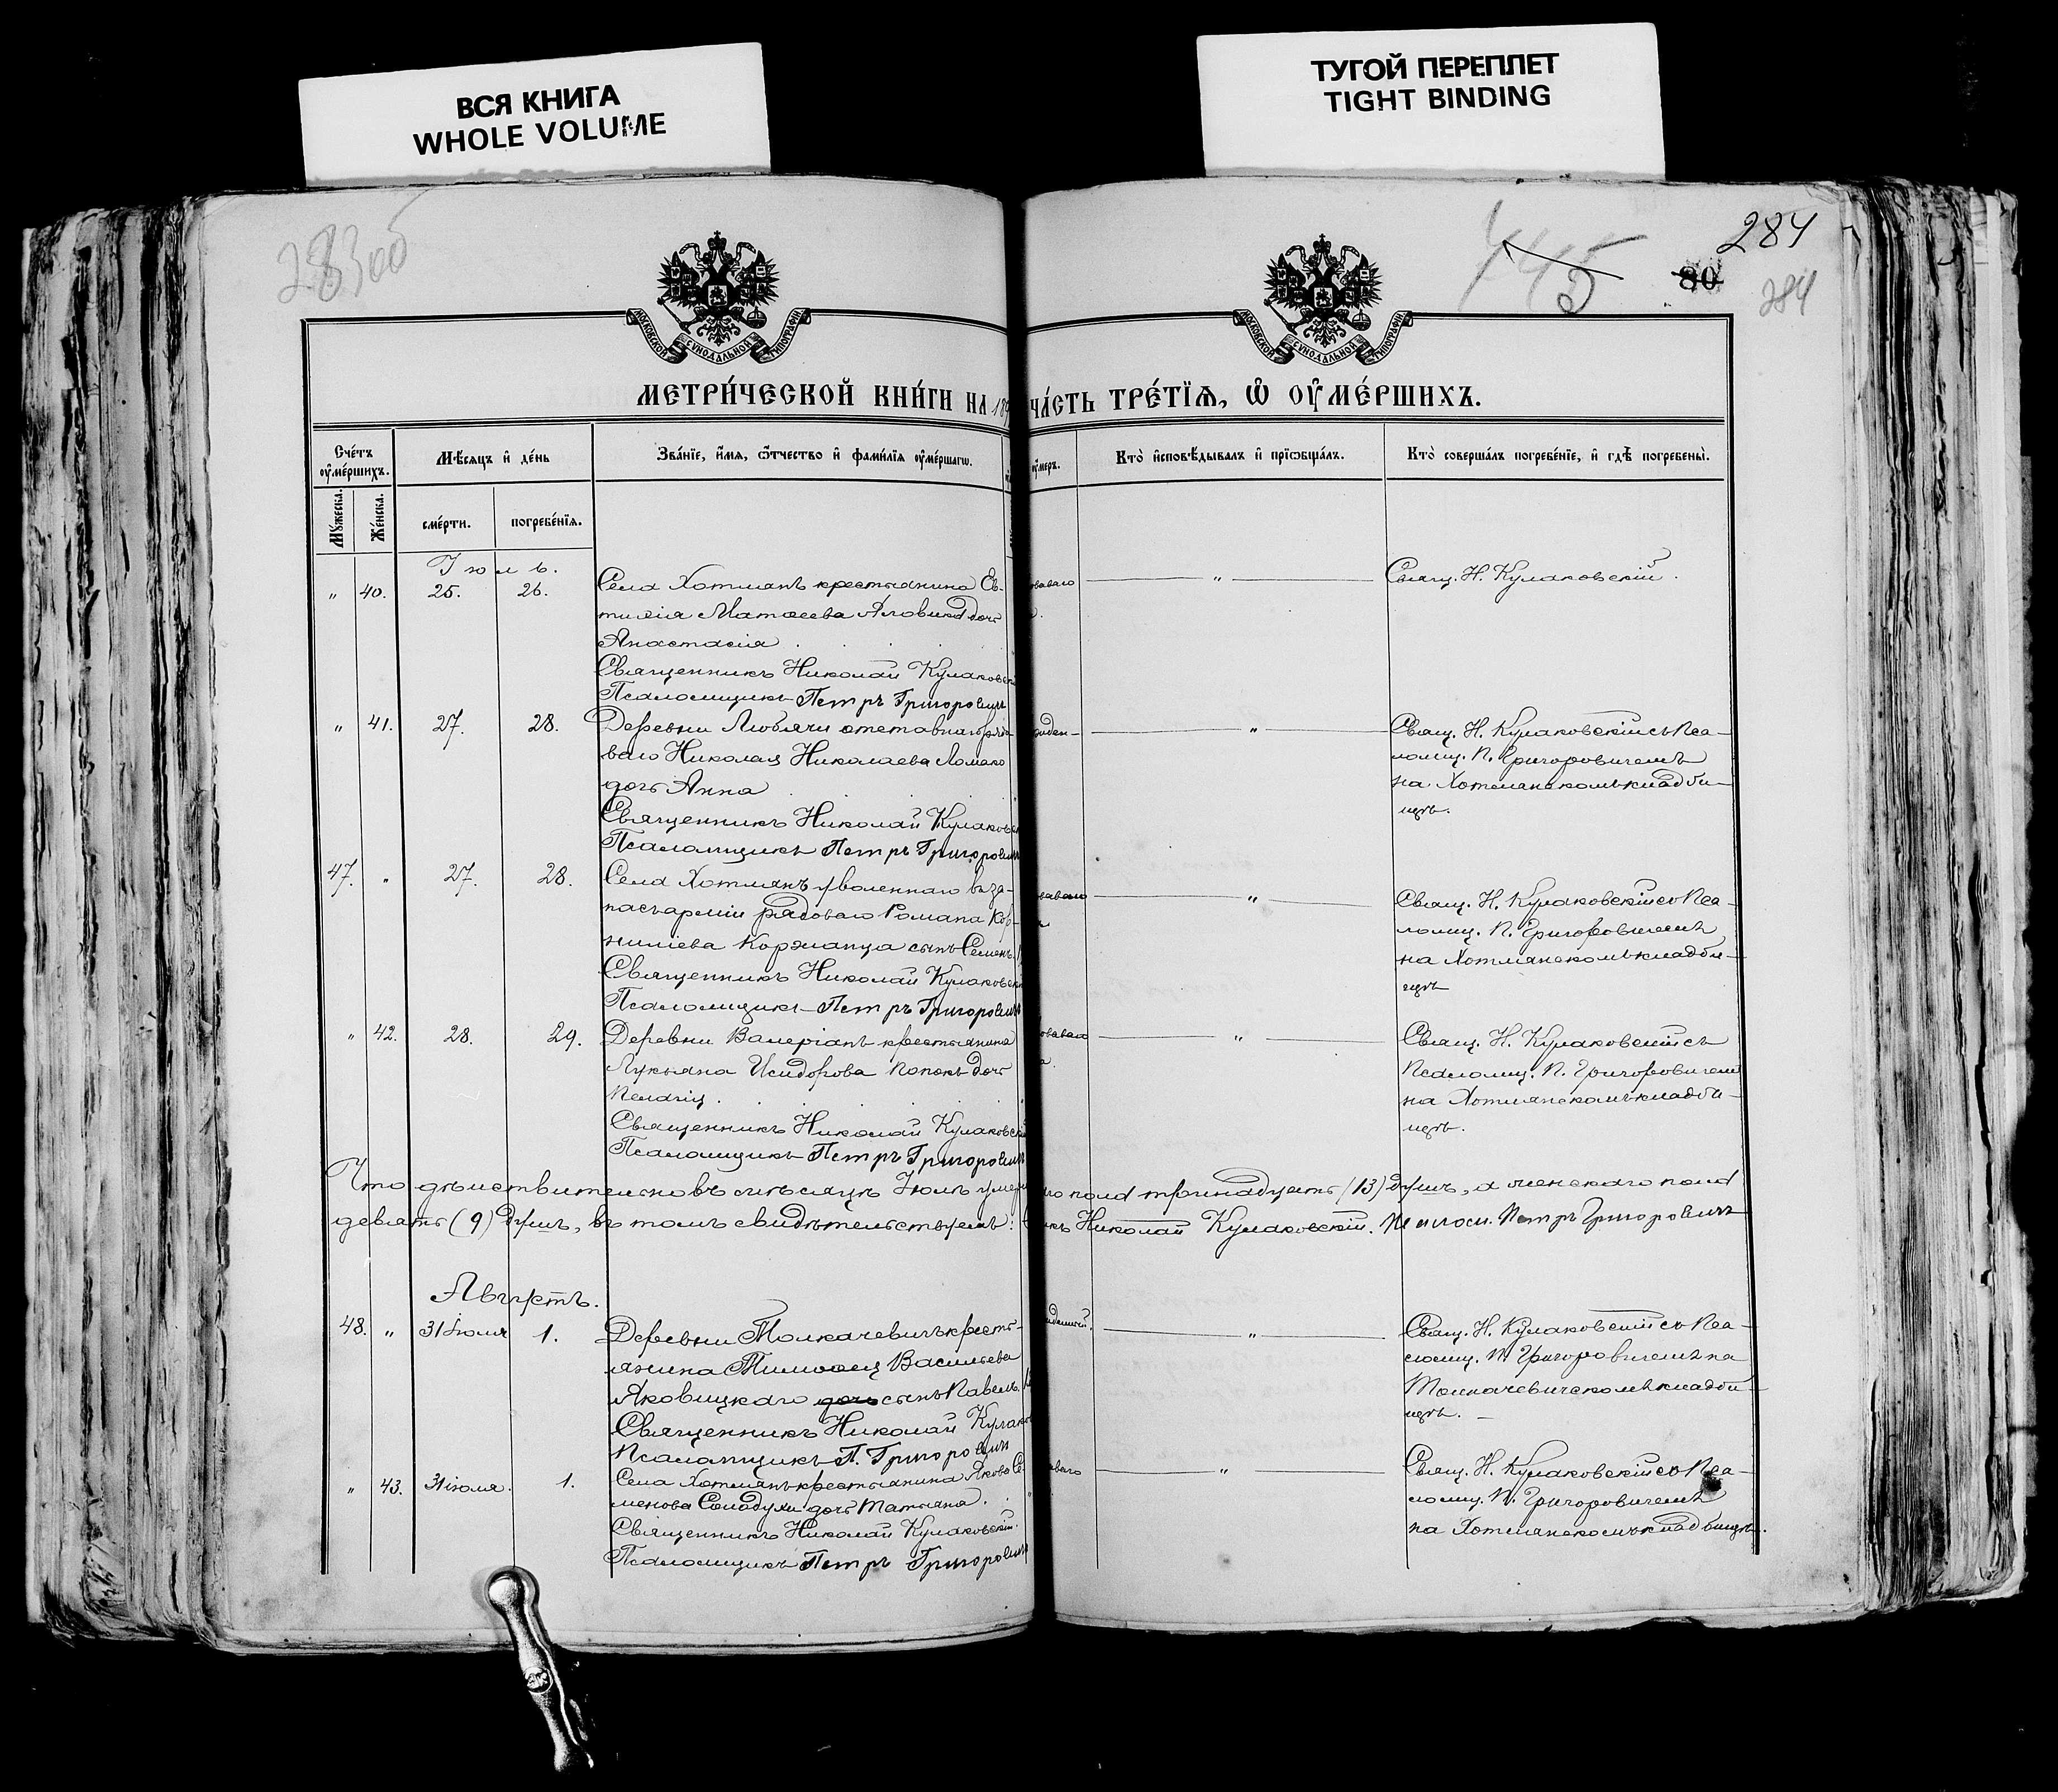 ВСЯ КНИГА
WHOLE VOLUME
ТУГОЙ ПЕРЕПЛЕТ
TIGHT BINDING
283об
284
80
284
145
МОСКОВСКОЙ СѴНОДАЛЬНОЙ ТИПОГРАФІИ
МОСКОВСКОЙ СѴНОДАЛЬНОЙ ТИПОГРАФІИ
МЕТРИ́ЧЕСКОЙ КНИ́ГИ НА 189
ЧА́СТЬ ТРЕ́ТЇѦ, Ѡ҆ ОУ҆МЕ́РШИХЪ.
Сче́тъ оу҆ме́ршихъ.
Мꙋ́жеска.
Же́нска.
Мѣ́сяцъ и҆ де́нь
сме́рти.
погребе́нїѧ.
Зва́нїе, и҆́мѧ, ѻ҆́тчество и҆ фами́лїѧ оу҆ме́ршагѡ.
оу҆́меръ.
Кто̀ и҆сповѣ́дывалъ и҆ прїѡбща́лъ.
Кто̀ соверша́лъ погребе́нїе, и҆ гдѣ̀ погребены̀.
Іюль.
" 40. 25. 26. Села Хотлянъ крестьянина Ев-
тихія Матѳеева Яловика дочь
Анастасія
Священникъ Николай Кулаковскі
Псаломщикъ Петръ Григоровичъ
" Свящ. Н. Кулаковскій.
" 41. 27. 28. Деревни Люблячи отставнаго рядо-
ваго Николая Николаева Ломако
дочь Анна
Священникъ Николай Кулаковск
Псаломщикъ Петръ Григорович
" Свящ. Н. Кулаковскій съ Пса-
ломщ. П. Григоровичемъ
на Хотлянскомъ кладби-
щѣ.
47. " 27. 28. Села Хотлянъ уволеннаго въ за-
пасъ арміи рядоваго Романа Кор-
нилiева Коржанца сынъ Семенъ.
Священникъ Николай Кулаковскі
Псаломщикъ Петръ Григорович
" Свящ. Н. Кулаковскій съ Пса-
ломщ. П. Григоровичемъ
на Хотлянскомъ кладби-
щѣ
" 42. 28. 29. Деревни Валеріанъ крестьянина
Лукьяна Исидорова Попокъ дочь
Пелагія.
Священникъ Николай Кулаковскій
Псаломщикъ Петръ Григоровичъ
" Свящ. Н. Кулаковскій съ
Псаломщ. П. Григоровичемъ
на Хотлянскомъ кладби-
щѣ.
Что дѣйствительно въ мѣсяцѣ Іюлѣ умер го пола тринадцать (13) душъ, а женскаго пола
девять (9) душъ, въ томъ свидѣтельствуемъ: икъ Николай Кулаковскій. Псаломщ. Петръ Григоровичъ
Августъ.
48. " 31 іюля 1. Деревни Толкачевичъ кресть-
янина Тимоѳея Васильева
Яковицкаго дочь сынъ Павелъ.
Священникъ Николай Кулако
Псаломщикъ П. Григорович
" Свящ. Н. Кулаковскій съ Пса-
ломщ. П. Григоровичемъ на
Толкачевичскомъ кладби-
щѣ.
" 43. 31 іюля. 1. Села Хотлянъ крестьянина Якова Се-
менова Соладухи дочь Татьяна.
Священникъ Николай Кулаковскій.
Псаломщикъ Петръ Григорович
" Свящ. Н. Кулаковскій съ Пса-
ломщ. П. Григоровичемъ
на Хотлянскомъ кладбищѣ.